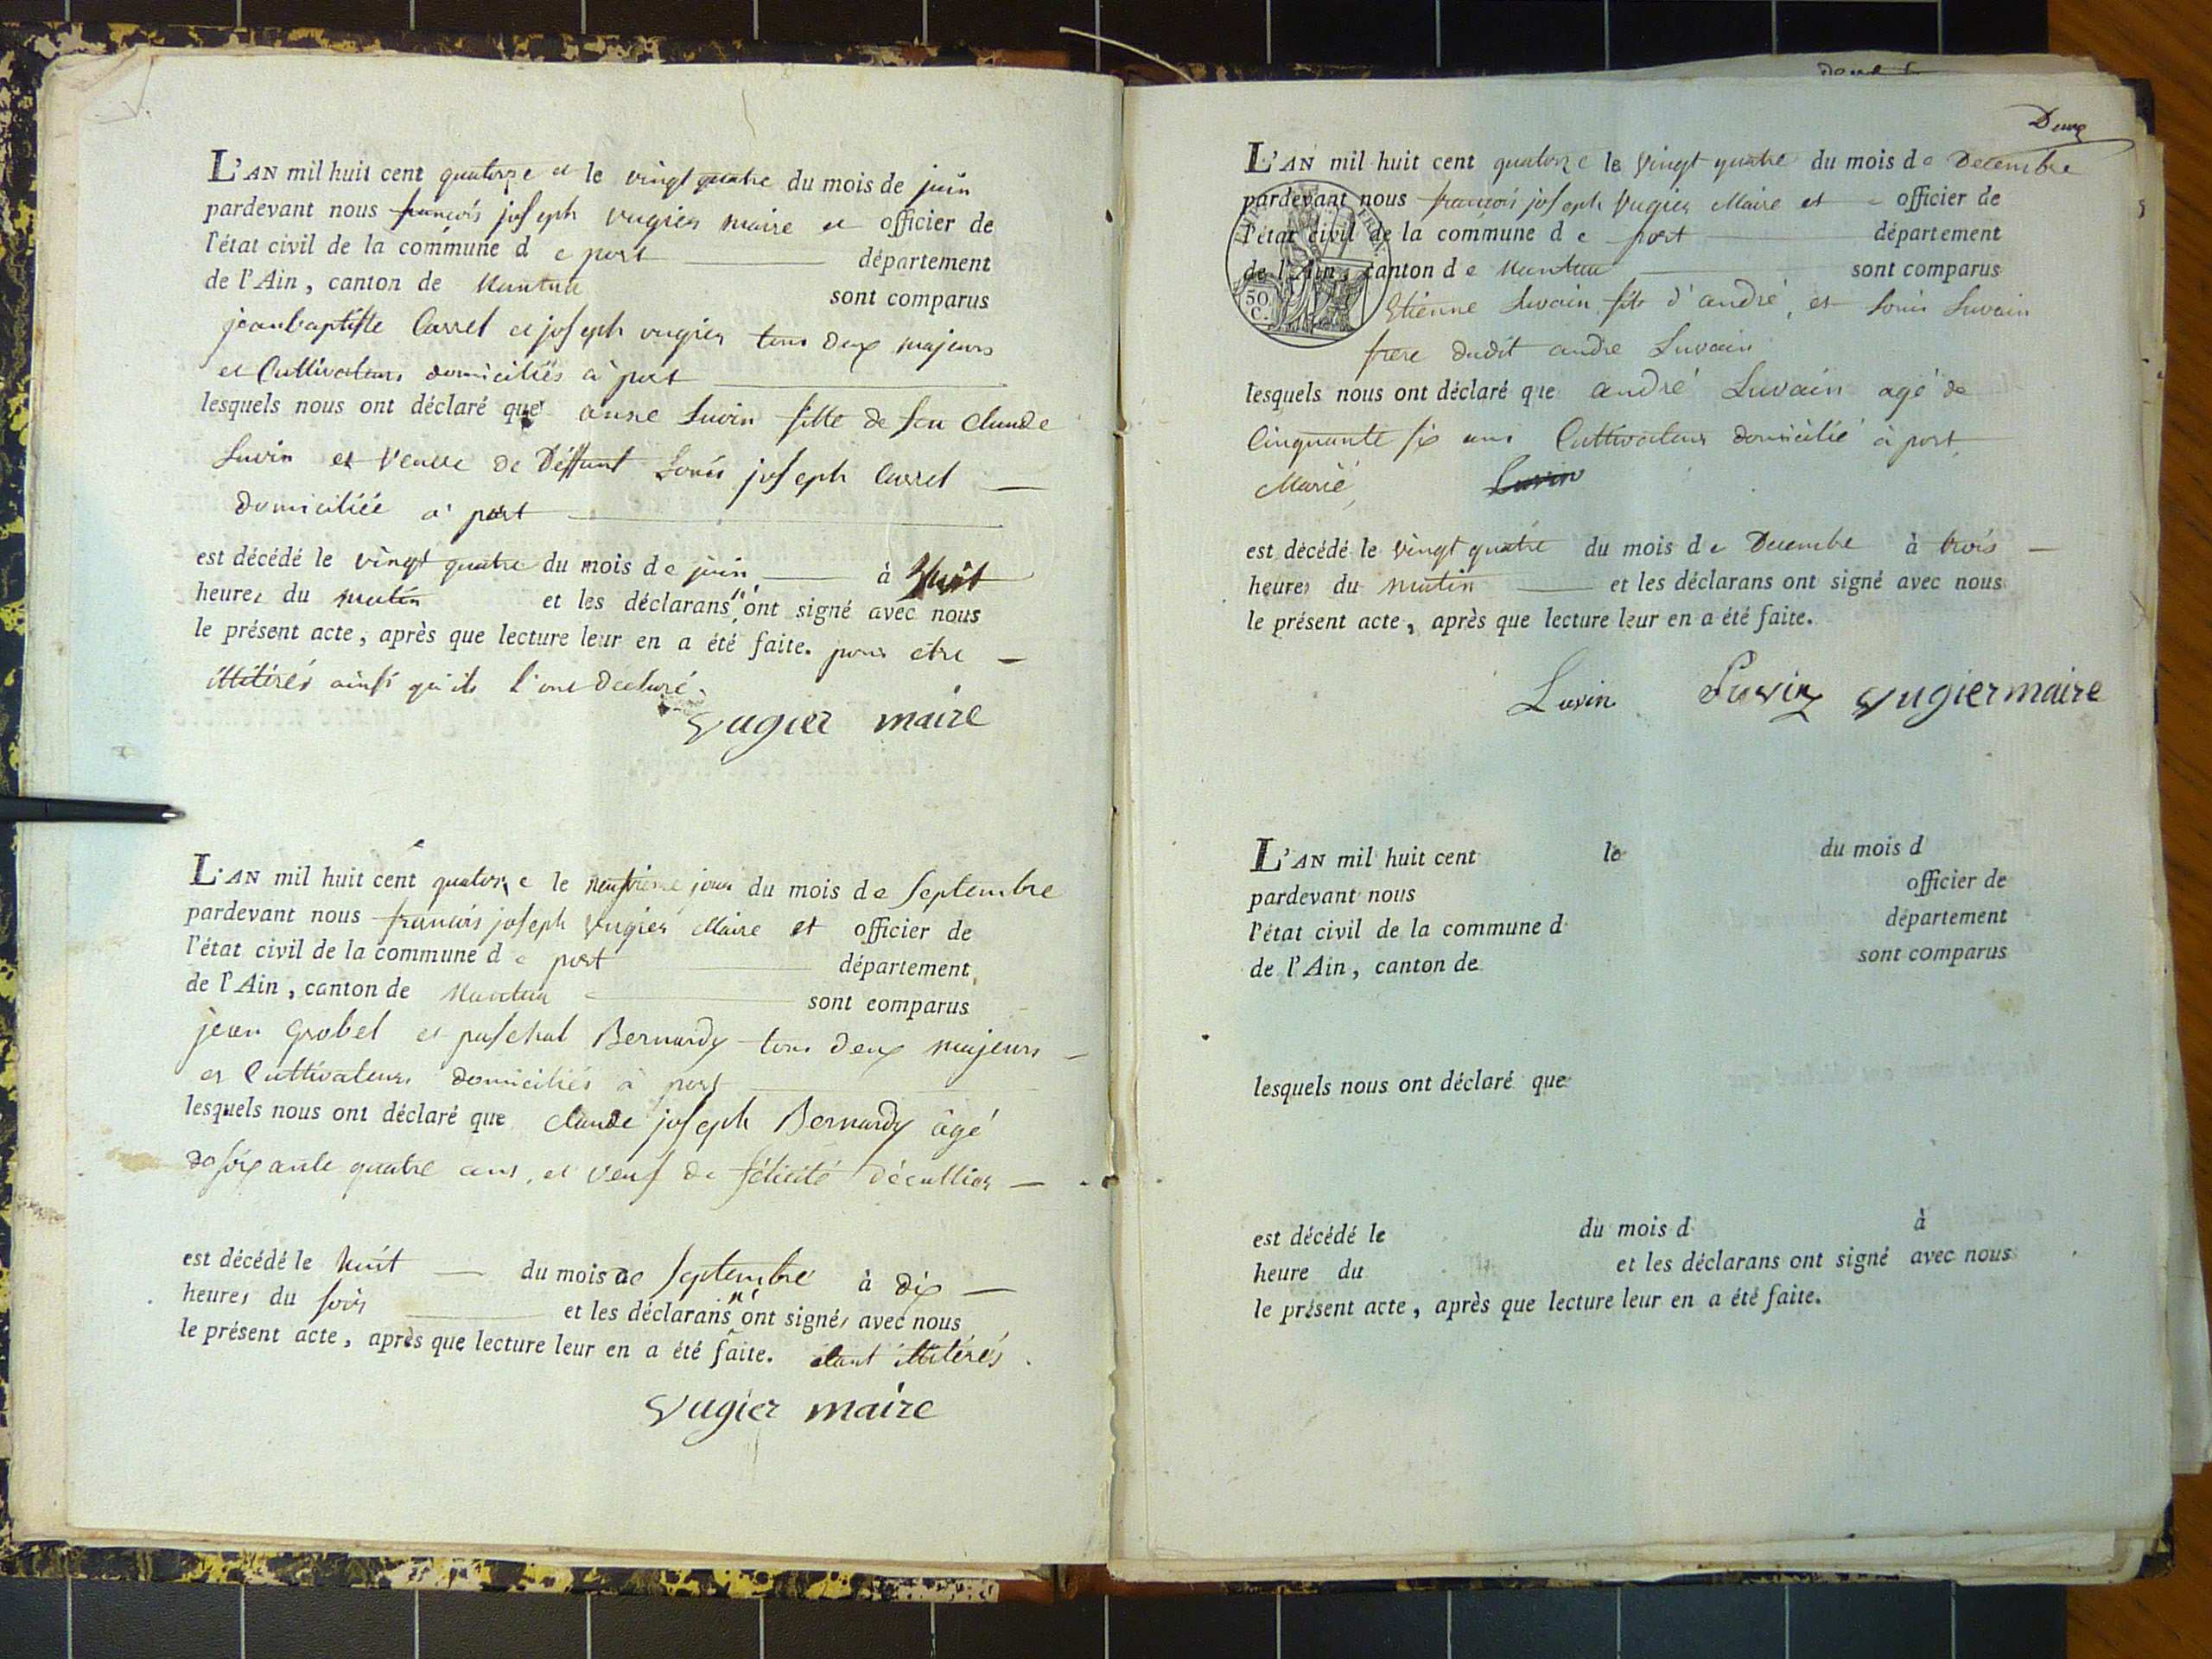 L'AN mil huit cent quatorze et le vingt quatre du mois de juin
pardevant nous françois joseph vugier maire et officier de
l'état civil de la commune de port département
de l'Ain, canton de Nantua sont comparus
jean baptiste Carrel et joseph vugier tous deux majeurs
et Cultivateurs domiciliés à port
lesquels nous ont déclaré que anne Luvin fille de feu Claude
Luvin et Veuve de Déffunt Louis joseph Carrel
domiciliée a port
est décédé le vingt quatre du mois de juin à huit
heures du matin et les déclarans n'ont signé avec nous
le présent acte, après que lecture leur en a été faite. pour etre
illitérés ainsi qu'ils l'ont déclaré.
Vugier maire
L'AN mil huit cent quatorze le neufvieme jour du mois de Septembre
pardevant nous françois joseph Vugier Maire et officier de
l'état civil de la commune de port département
de l'Ain, canton de Nantua sont comparus
jean Grobel et paschal Bernardy tous deux majeurs
et Cultivateurs domiciliés à port
lesquels nous ont déclaré que Claude joseph Bernardy âgé
de soixante quatre ans, et veuf de félicité
est décédé le huit du mois de Septembre à dix
heures du soir et les déclarans n'ont signés avec nous
le présent acte, après que lecture leur en a été faite. étant illitérés.
Vugier maire
Deux
L'AN mil huit cent quatorze le vingt quatre du mois de Decembre
pardevant nous françois joseph Vugier Maire et officier de
l'état civil de la commune de port département
de l'Ain, canton de Nantua sont comparus
50
C.
Etienne Luvain fils d'andré, et Louis Luvain
frere dudit andre Luvain
lesquels nous ont déclaré que andré Luvain agé de
Cinquante six ans Cultivateur domicilié à port
Marié Luvin
est décédé le vingt quatre du mois de Decembre à trois
heures du matin et les déclarans ont signé avec nous
le présent acte, après que lecture leur en a été faite.
Luvin Luvin Vugier maire
L'AN mil huit cent le du mois d
pardevant nous officier de
l'état civil de la commune d département
de l'Ain, canton de sont comparus
lesquels nous ont déclaré que
est décédé le du mois d à
heure du et les déclarans ont signé avec nous
le présent acte, après que lecture leur en a été faite.